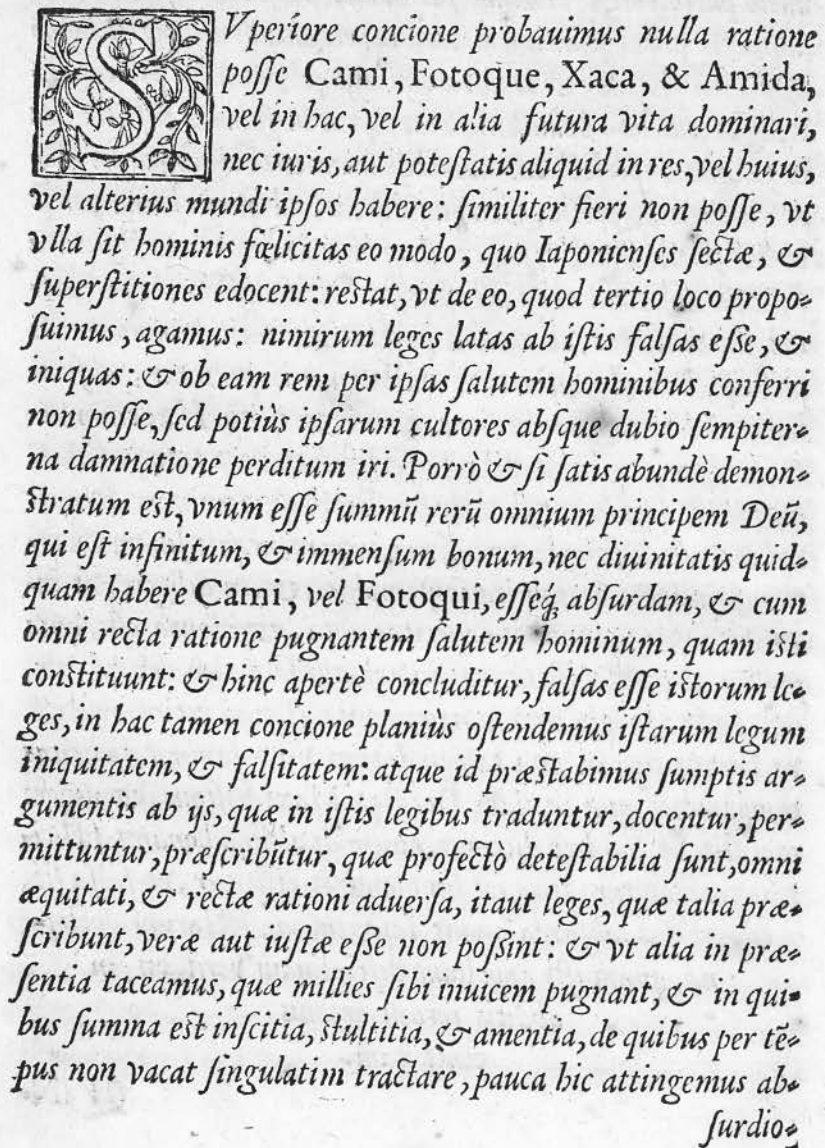 SVperiore concione probauimus nulla ratione
posse Cami, Fotoque, Xaca, & Amida,
vel in hac, vel in alia futura vita dominari,
nec iuris, aut potestatis aliquid in res, vel huius,
vel alterius mundi ipsos habere: similiter fieri non posse, vt
vlla sit hominis fœlicitas eo modo, quo Iaponienses sectæ, &
superstitiones edocent: restat, vt de eo, quod tertio loco propo-
suimus, agamus: nimirum leges latas ab istis falsas esse, &
iniquas: & ob eam rem per ipsas salutem hominibus conferri
non posse, sed potiùs ipsarum cultores absque dubio sempiter-
na damnatione perditum iri. Porrò & si satis abundè demon-
stratum est, vnum esse summū rerū omnium principem Deū,
qui est infinitum, & immensum bonum, nec diuinitatis quid-
quam habere Cami, vel Fotoqui, esseq́; absurdam, & cum
omni recta ratione pugnantem salutem hominum, quam isti
constituunt: & hinc apertè concluditur, falsas esse istorum le-
ges, in hac tamen concione planiùs ostendemus istarum legum
iniquitatem, & falsitatem: atque id præstabimus sumptis ar-
gumentis ab ijs, quæ in istis legibus traduntur, docentur, per-
mittuntur, præscribūtur, quæ profectò detestabilia sunt, omni
æquitati, & rectæ rationi aduersa, itaut leges, quæ talia præ-
scribunt, veræ aut iustæ esse non possint: & vt alia in præ-
sentia taceamus, quæ millies sibi inuicem pugnant, & in qui-
bus summa est inscitia, stultitia, & amentia, de quibus per tē-
pus non vacat singulatim tractare, pauca hic attingemus ab-
surdio-